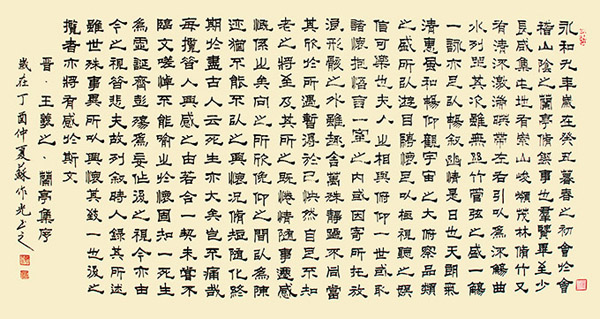 永和九年歲在癸丑暮春之初會於會
稽山陰之蘭亭脩禊事也羣賢畢至少
長咸集此地有崇山峻嶺茂林脩竹又
有清流激湍映帶左右引以為流觴曲
水列坐其次雖無絲竹管弦之盛一觴
一詠亦足以暢敘幽情是日也天朗氣
清惠風和暢仰觀宇宙之大俯察品類
之盛所以遊目騁懷足以極視聽之娛
信可樂也夫人之相與俯仰一世或取
諸懷抱悟言一室之內或因寄所託放
浪形骸之外雖趣舍萬殊靜躁不同當
其欣於所遇暫得於己怏然自足不知
老之將至及其所之既倦情隨事遷感
慨係之矣向之所欣俛仰之間以為陳
迹猶不能不以之興懷況脩短隨化終
期於盡古人云死生亦大矣豈不痛哉
每攬昔人興感之由若合一契未嘗不
臨文嗟悼不能喻之於懷固知一死生
為虛誕齊彭殤為妄作後之視今亦由
今之視昔悲夫故列敘時人錄其所述
雖世殊事異所以興懷其致一也後之
攬者亦將有感於斯文
晉·王羲之·蘭亭集序
歲在丁酉仲夏蘇作光書之